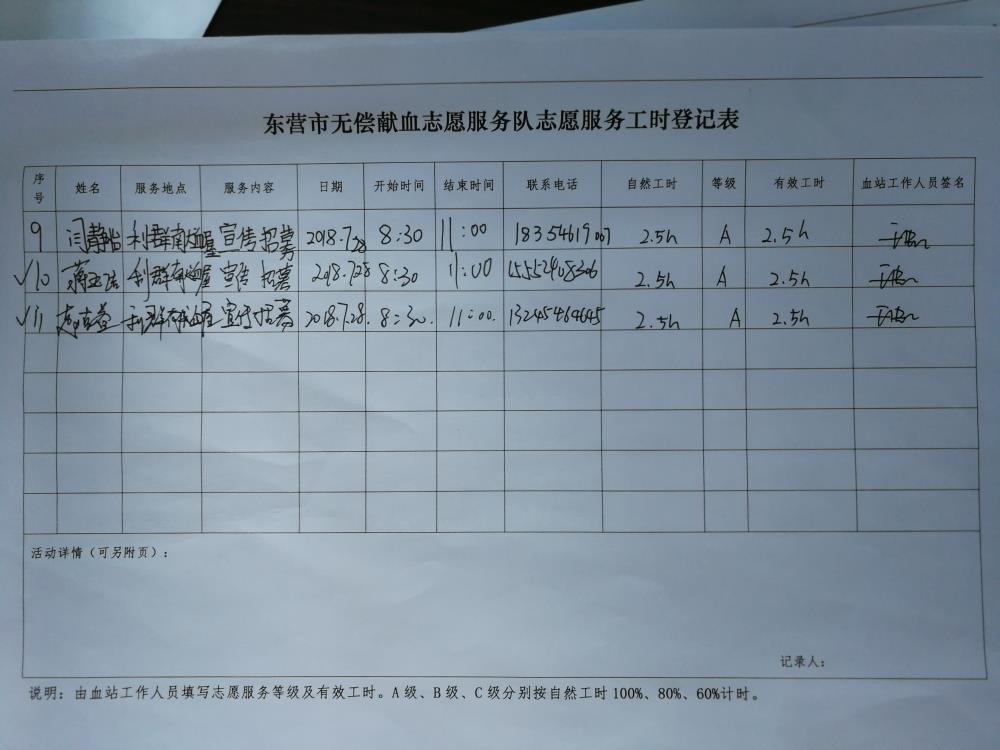 东营市无偿献血志愿服务队志愿服务工时登记表
序号 姓名 服务地点 服务内容 日期 开始时间 结束时间 联系电话 自然工时 等级 有效工时 血站工作人员签名
9 闫静怡 利群献血屋 宣传招募 2018.7.28 8:30 11:00 18354619067 2.5h A 2.5h
√10 利群献血屋 宣传招募 2018.7.28 8:30 11:00 15552408306 2.5h A 2.5h
√11 利群献血屋 宣传招募 2018.7.28. 8:30. 11:00. 13245464645 2.5h A 2.5h
活动详情(可另附页):
记录人:
说明:由血站工作人员填写志愿服务等级及有效工时。A级、B级、C级分别按自然工时100%、80%、60%计时。